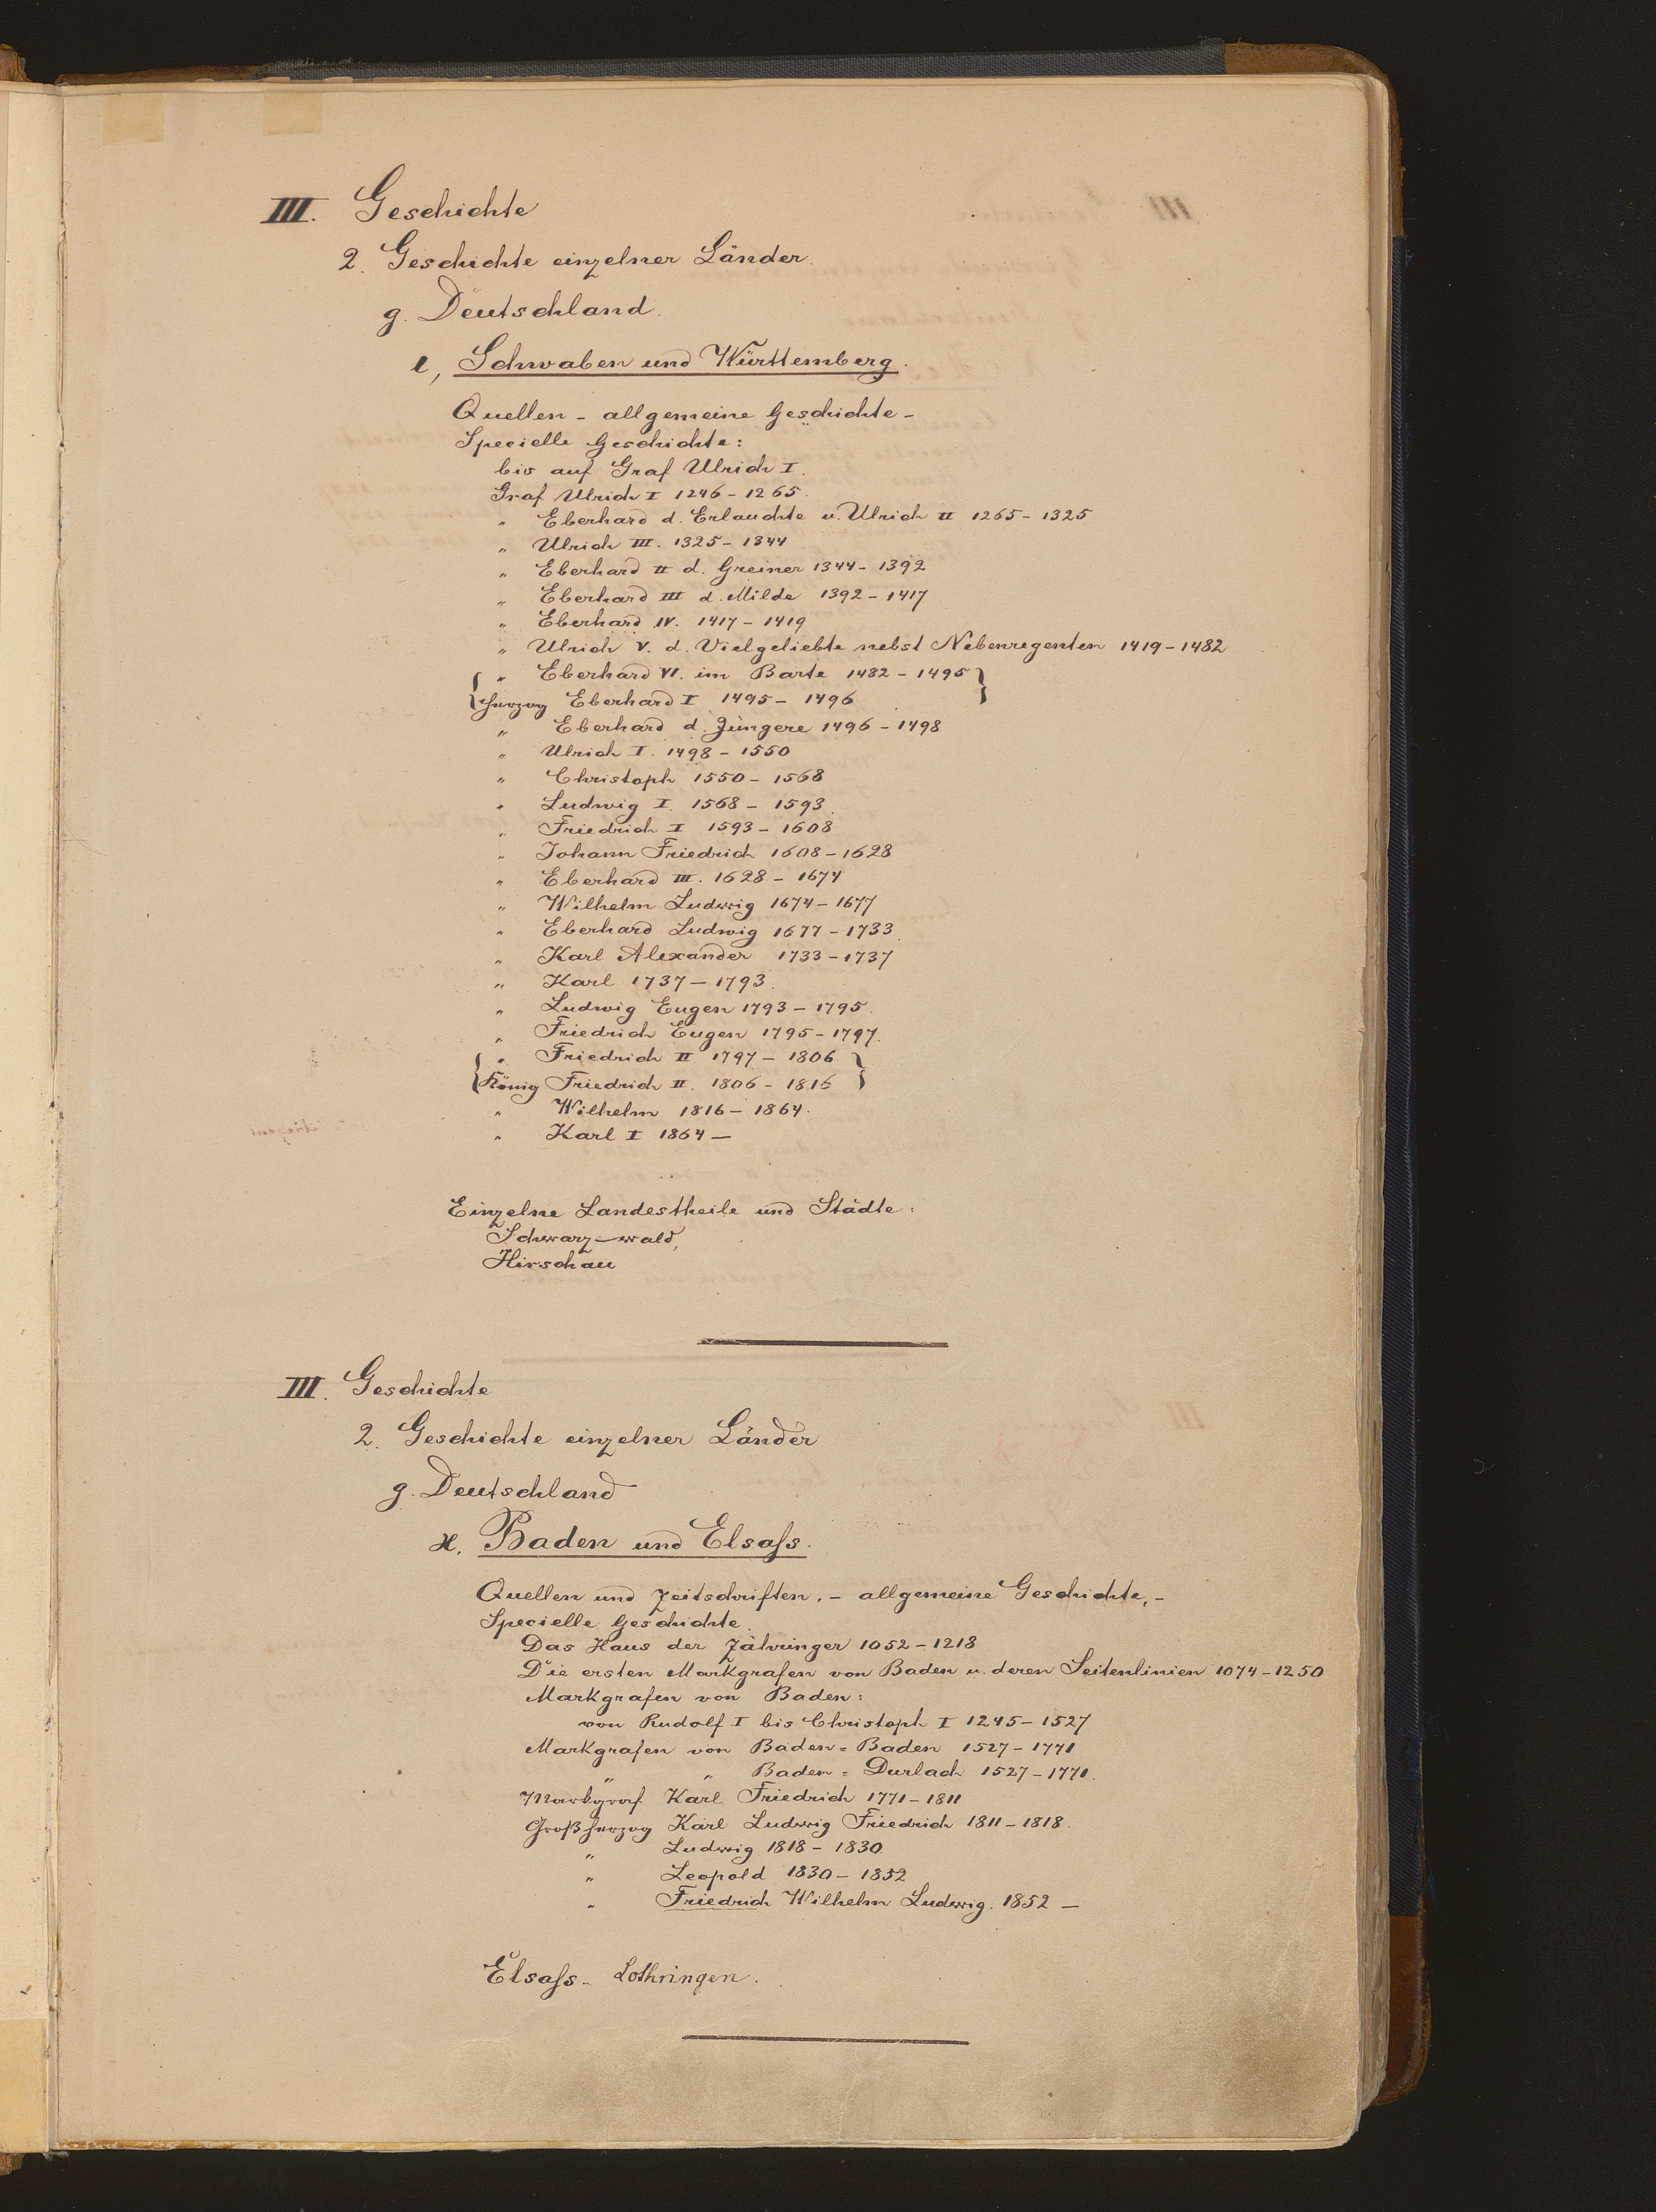 III. Geschichte
2. Geschichte einzelner Länder.
g. Deutschland.
ι, Schwaben und Württemberg.
Quellen - allgemeine Geschichte -
Specielle Geschichte:
bis auf Graf Ulrich I.
Graf Ulrich I 1246 - 1265.
" Eberhard d. Erlauchte u. Ulrich II 1265 - 1325
" Ulrich III. 1325 - 1344
" Eberhard II d. Greiner 1344 - 1392
" Eberhard III d. Milde 1392 - 1417
" Eberhard IV. 1417 - 1419
" Ulrich V. d. Vielgeliebte nebst Nebenregenten 1419 - 1482
{ " Eberhard VI. im Barte 1482 - 1495 }
{ Herzog Eberhard I 1495 - 1496 }
" Eberhard d. Jüngere 1496 - 1498
" Ulrich I. 1498 - 1550
" Christoph 1550 - 1568
" Ludwig I 1568 - 1593.
" Friedrich I 1593 - 1608
" Johann Friedrich 1608 - 1628
" Eberhard III. 1628 - 1674
" Wilhelm Ludwig 1674 - 1677
" Eberhard Ludwig 1677 - 1733.
" Karl Alexander 1733 - 1737
" Karl 1737 - 1793.
" Ludwig Eugen 1793 - 1795.
" Friedrich Eugen 1795 - 1797.
{ " Friedrich II 1797 - 1806. }
{ König Friedrich II. 1806 - 1816 }
" Wilhelm 1816 - 1864.
" Karl I 1864 -
Einzelne Landestheile und Städte:
Schwarz-wald,
Hirschau
III. Geschichte
2. Geschichte einzelner Länder
g. Deutschland
ϰ. Baden und Elsaſs.
Quellen und Zeitschriften. - allgemeine Geschichte, -
Specielle Geschichte.
Das Haus der Zähringer 1052 - 1218
Die ersten Markgrafen von Baden u. deren Seitenlinien 1074 - 1250
Markgrafen von Baden:
von Rudolf I bis Christoph I 1245 - 1527
Markgrafen von Baden = Baden 1527 - 1771
" " Baden = Durlach 1527 - 1771.
Markgraf Karl Friedrich 1771 - 1811
Großherzog Karl Ludwig Friedrich 1811 - 1818.
" Ludwig 1818 - 1830.
" Leopold 1830 - 1852
" Friedrich Wilhelm Ludwig. 1852 -
Elsaſs - Lothringen.